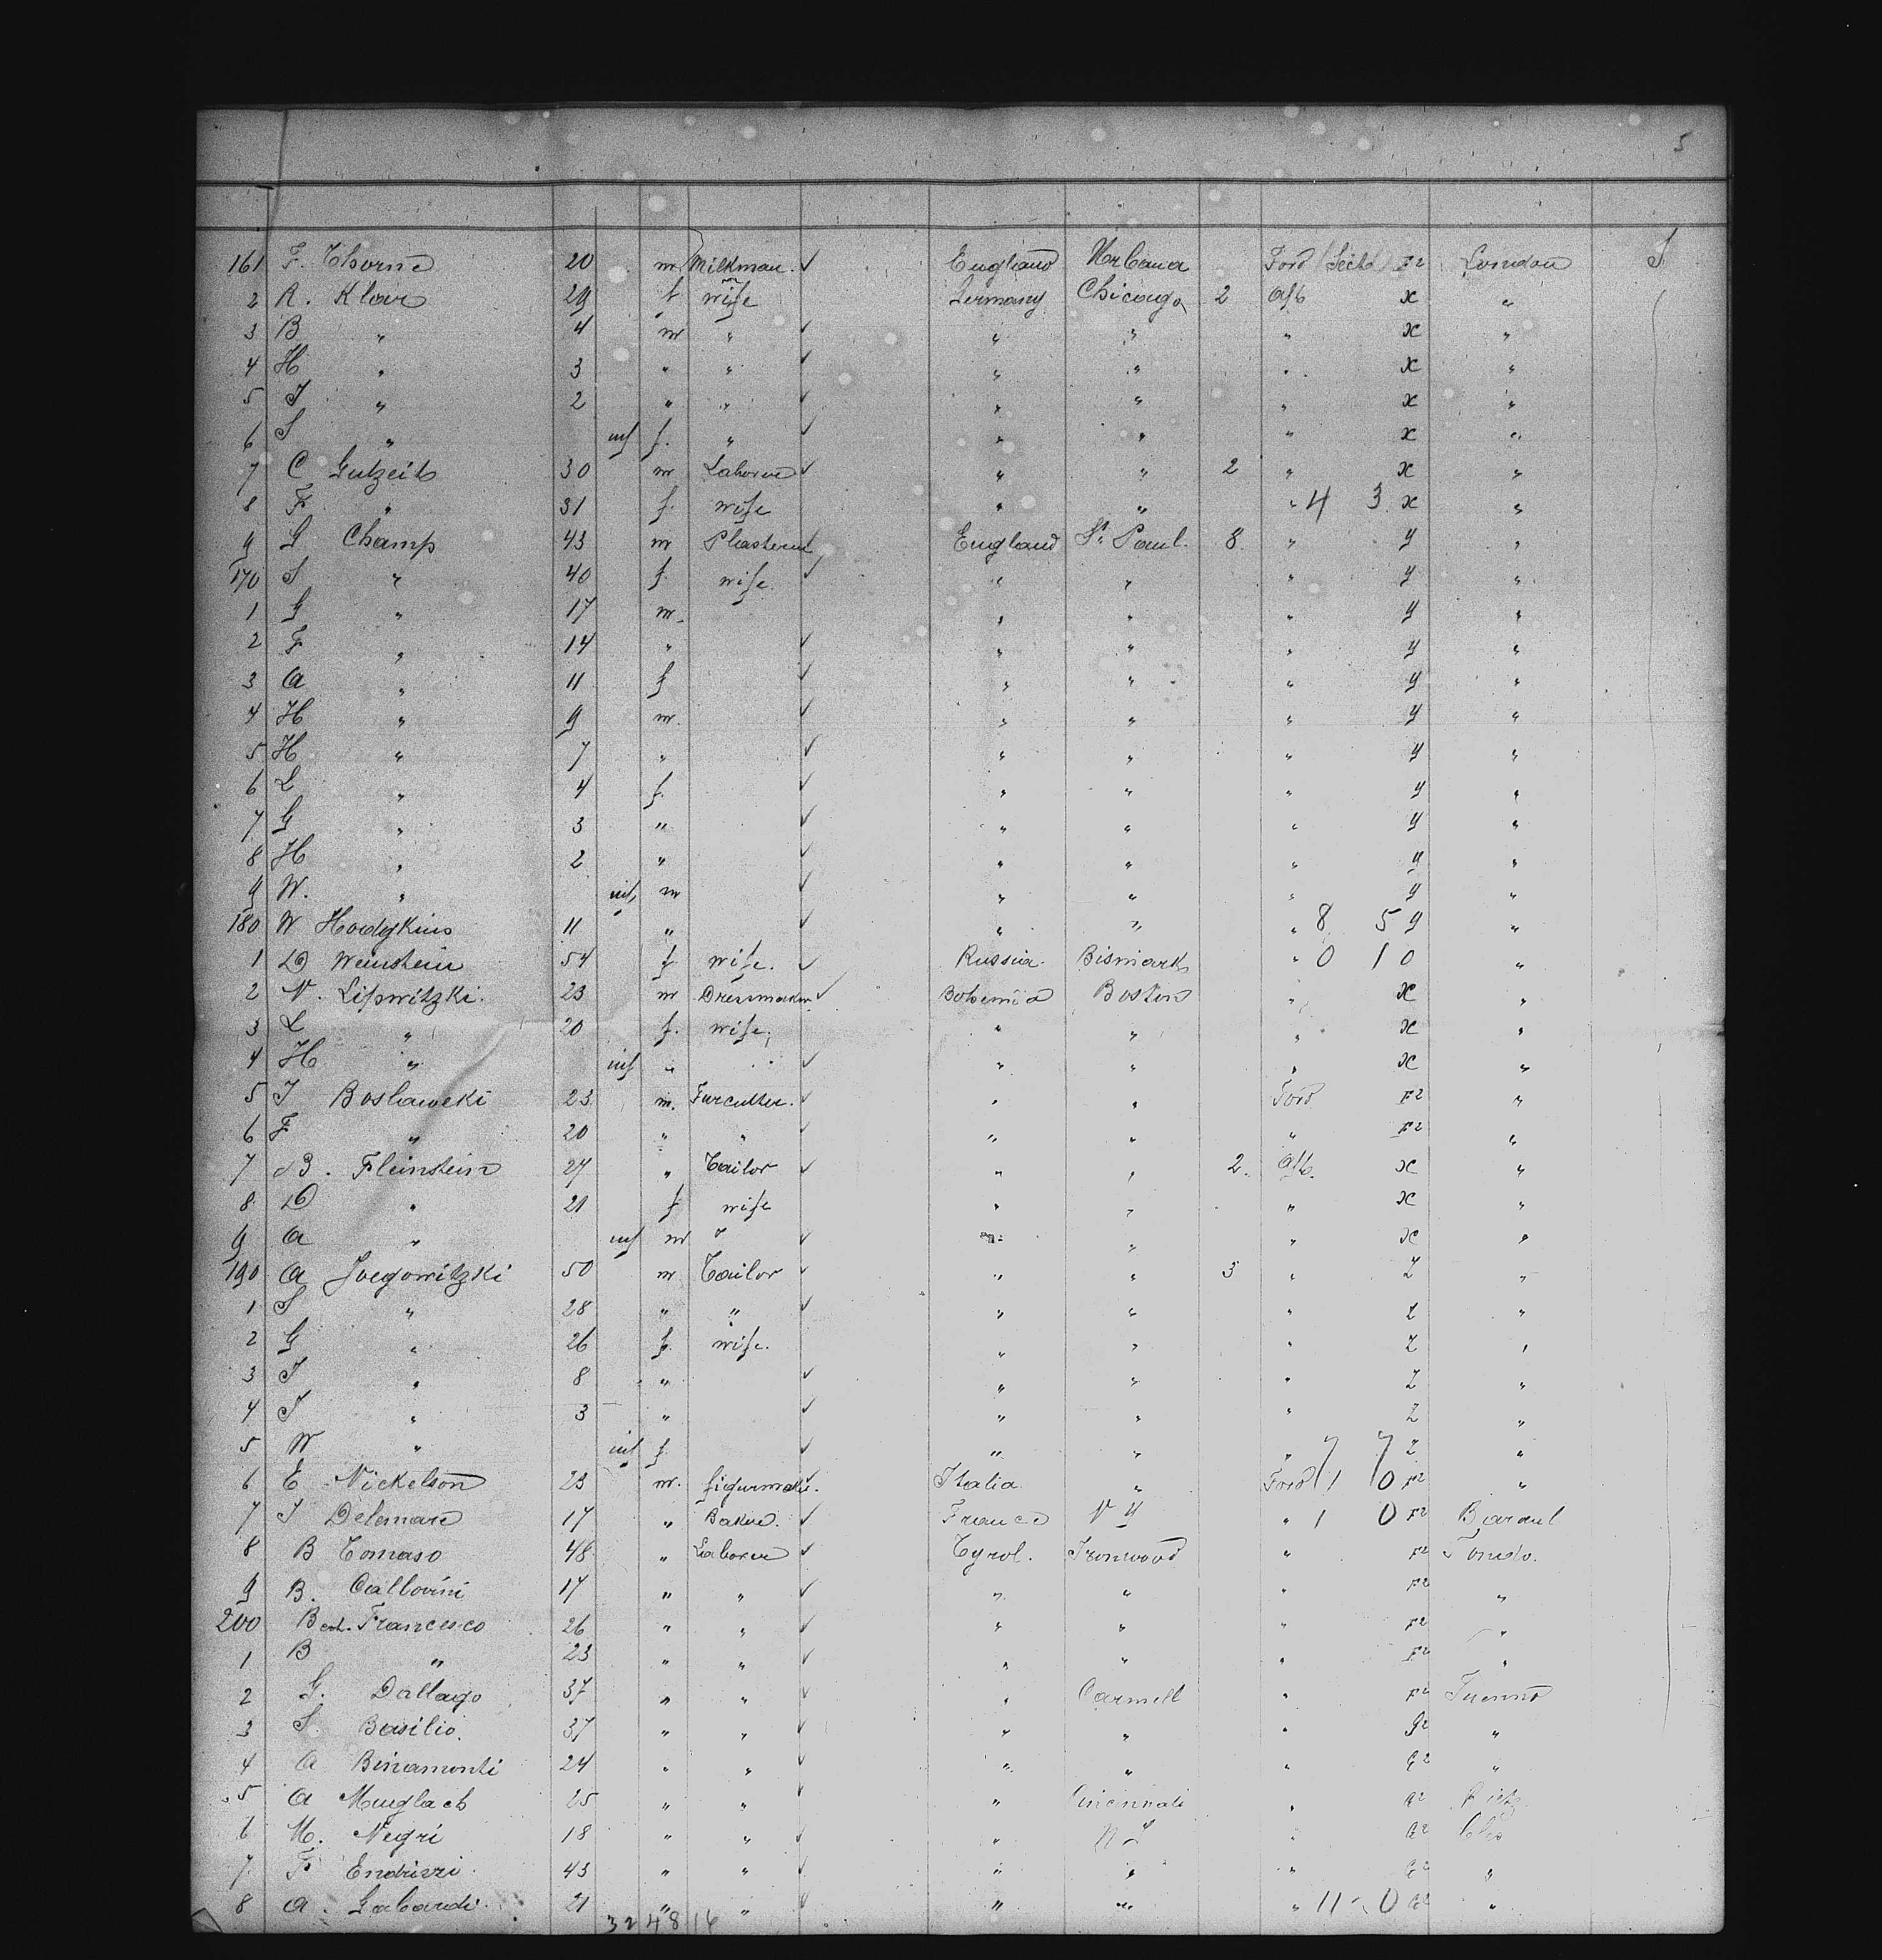 5
161 F. Thorne 20 m Milkman. ✓ England Urbana Ford F2 London S
2 R. Klar 29 f wife Germany Chicago 2 Aft x "
3 B " 4 m " ✓ " " " x "
4 H " 3 " " ✓ " " " x "
5 J " 2 " " ✓ " " " x "
6 S " inf f. " ✓ " " " x "
7 C Gutzeit 30 m Laborer ✓ " " 2 " x "
8 F " 31 f. wife " " " 4 3 x "
9 G Champ 43 m Plasterer ✓ England St. Paul. 8 " y "
170 S " 40 f. wife. ✓ " " " y "
1 G " 17 m. " " " y "
2 F " 14 " ✓ " " " y "
3 A " 11 f ✓ " " " y "
4 H " 9 m. ✓ " " " y "
5 H " 7 " ✓ " " " y "
6 L " 4 f. ✓ " " " y "
7 G " 3 " ✓ " " " y "
8 H " 2 " ✓ " " " y "
9 W. " inf, m ✓ " " " y "
180 W Hodgkins 11 " ✓ " " " 8 5 y "
1 D Weinstein 54 f wife. ✓ Russia. Bismark " 0 1 0 "
2 N. Lipwitzki. 23 m Dressmaker ✓ Bohemia Boston " x "
3 L " 20 f. wife. " " " x "
4 H " inf " ✓ " " " x "
5 J Boslaweki 23 m. Furcutter. ✓ " " Ford F2 "
6 F " 20 " " ✓ " " " F2 "
7 B. Fleinstein 27 " Tailor ✓ " " 2. Aft. x "
8 D " 21 f wife " " " x "
9 A " inf m " ✓ " " " x "
190 A Jvegowitzki 50 m Tailor ✓ " " 3 " Z "
1 S " 28 " " ✓ " " " Z "
2 G " 26 f. wife. " " " Z "
3 J " 8 " ✓ " " " Z "
4 J " 3 " ✓ " " " Z "
5 W " inf f. ✓ " " " 7 7 Z "
6 E Nickelson 23 m. figurmaker. ✓ Italia " Ford 1 0 F2 "
7 J Delemare 17 " Baker. France N Y " 1 0 F2
8 B Tomaso 48 " Laborer ✓ Tyrol. Ironwood " F2
9 B. Callovini 17 " " ✓ " " " F2 "
200 Francesco 26 " " ✓ " " " F2 "
1 B " 23 " " ✓ " " " F2 "
2 G. Dallago 37 " " ✓ " Carmell " F2 Tuenno
3 S. Basilio. 37 " " ✓ " " " G2 "
4 A Binamonti 24 " " ✓ " " " G2 "
5 A Muglach 25 " " ✓ " Cincinnati " G2
6 M. Negri 18 " " ✓ " " G2 Cles
7 F Endrizzi. 43 " " ✓ " " " G2 "
8 A. Gabardi 21 " " ✓ " " " 11 - 0 G2 "
32 48 16